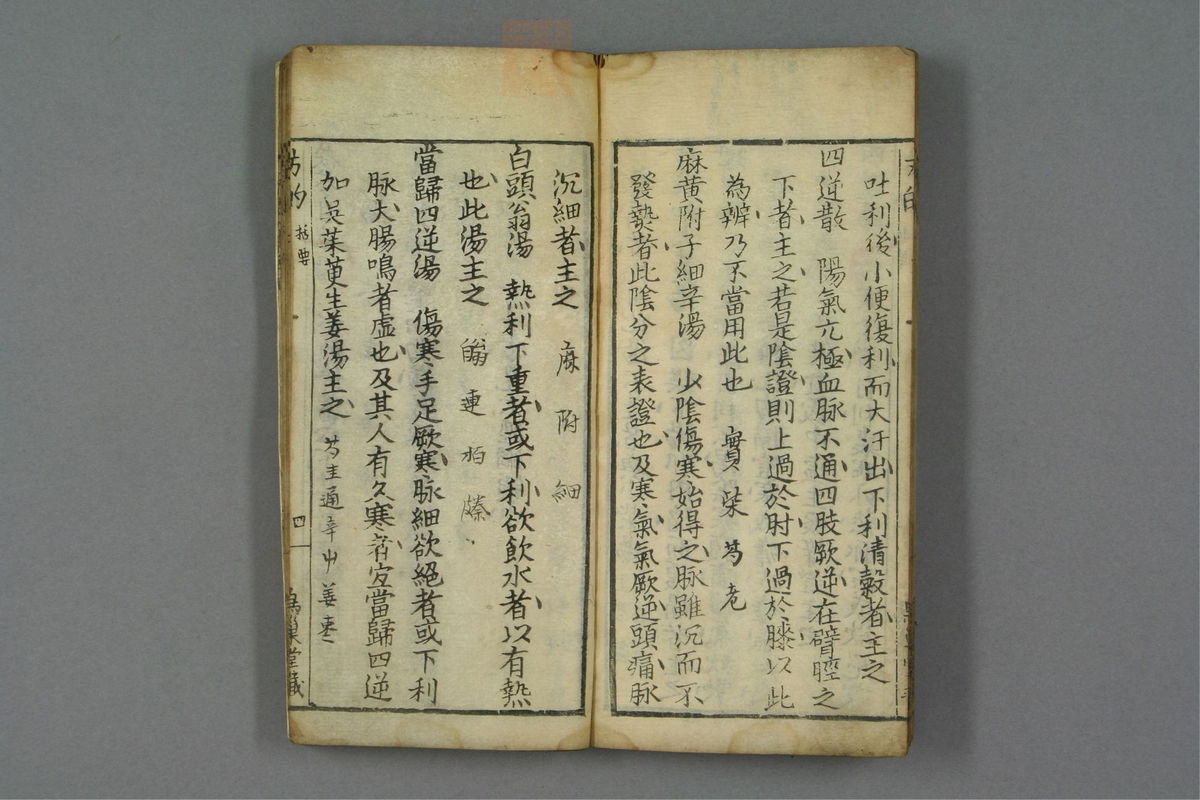 吐利後小便復利而大汗出下利清穀者主之
四逆散 陽氣亢極血脉不通四肢厥逆在臂脛之
下者主之若是陰證則上過於肘下過於膝以此
為辨乃不當用此也 實柴芍老
麻黄附子細辛湯 少陰傷寒始得之脉雖沉而不
發熱者此陰分之表證也及寒氣氣厥逆頭痛脉
沉細者主之 麻附細
白頭翁湯 熱利下重者或下利欲飲水者以有熱
也此湯主之 翁連栢
當歸四逆湯 傷寒手足厥寒脉細欲絕者或下利
脉大腸鳴者虛也及其人有久寒者宜當歸四逆
加吳茱萸生姜湯主之 芍圭通辛中姜棗
方的 括要
四
為巢堂藏